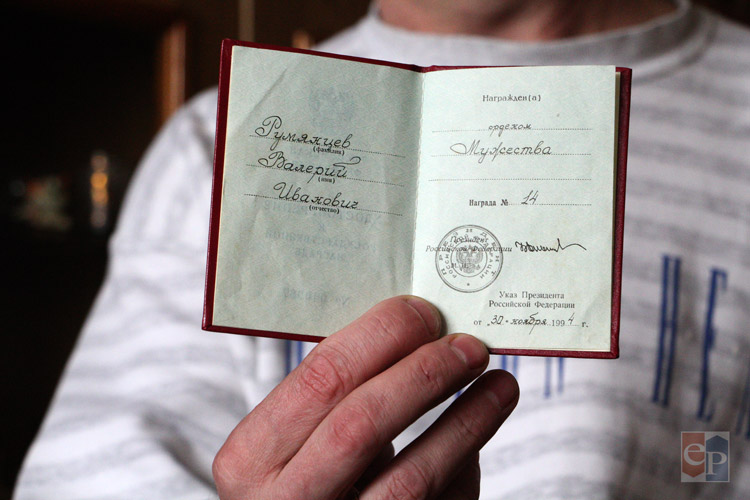 Румянцев
(фамилия)
Валерий
(имя)
Иванович
(отчество)
Награжден(а)
орденом
Мужества
Награда № 14
Президент
Российской Федерации
Указ Президента
Российской Федерации
от "30" ноября 1994 г.
ер